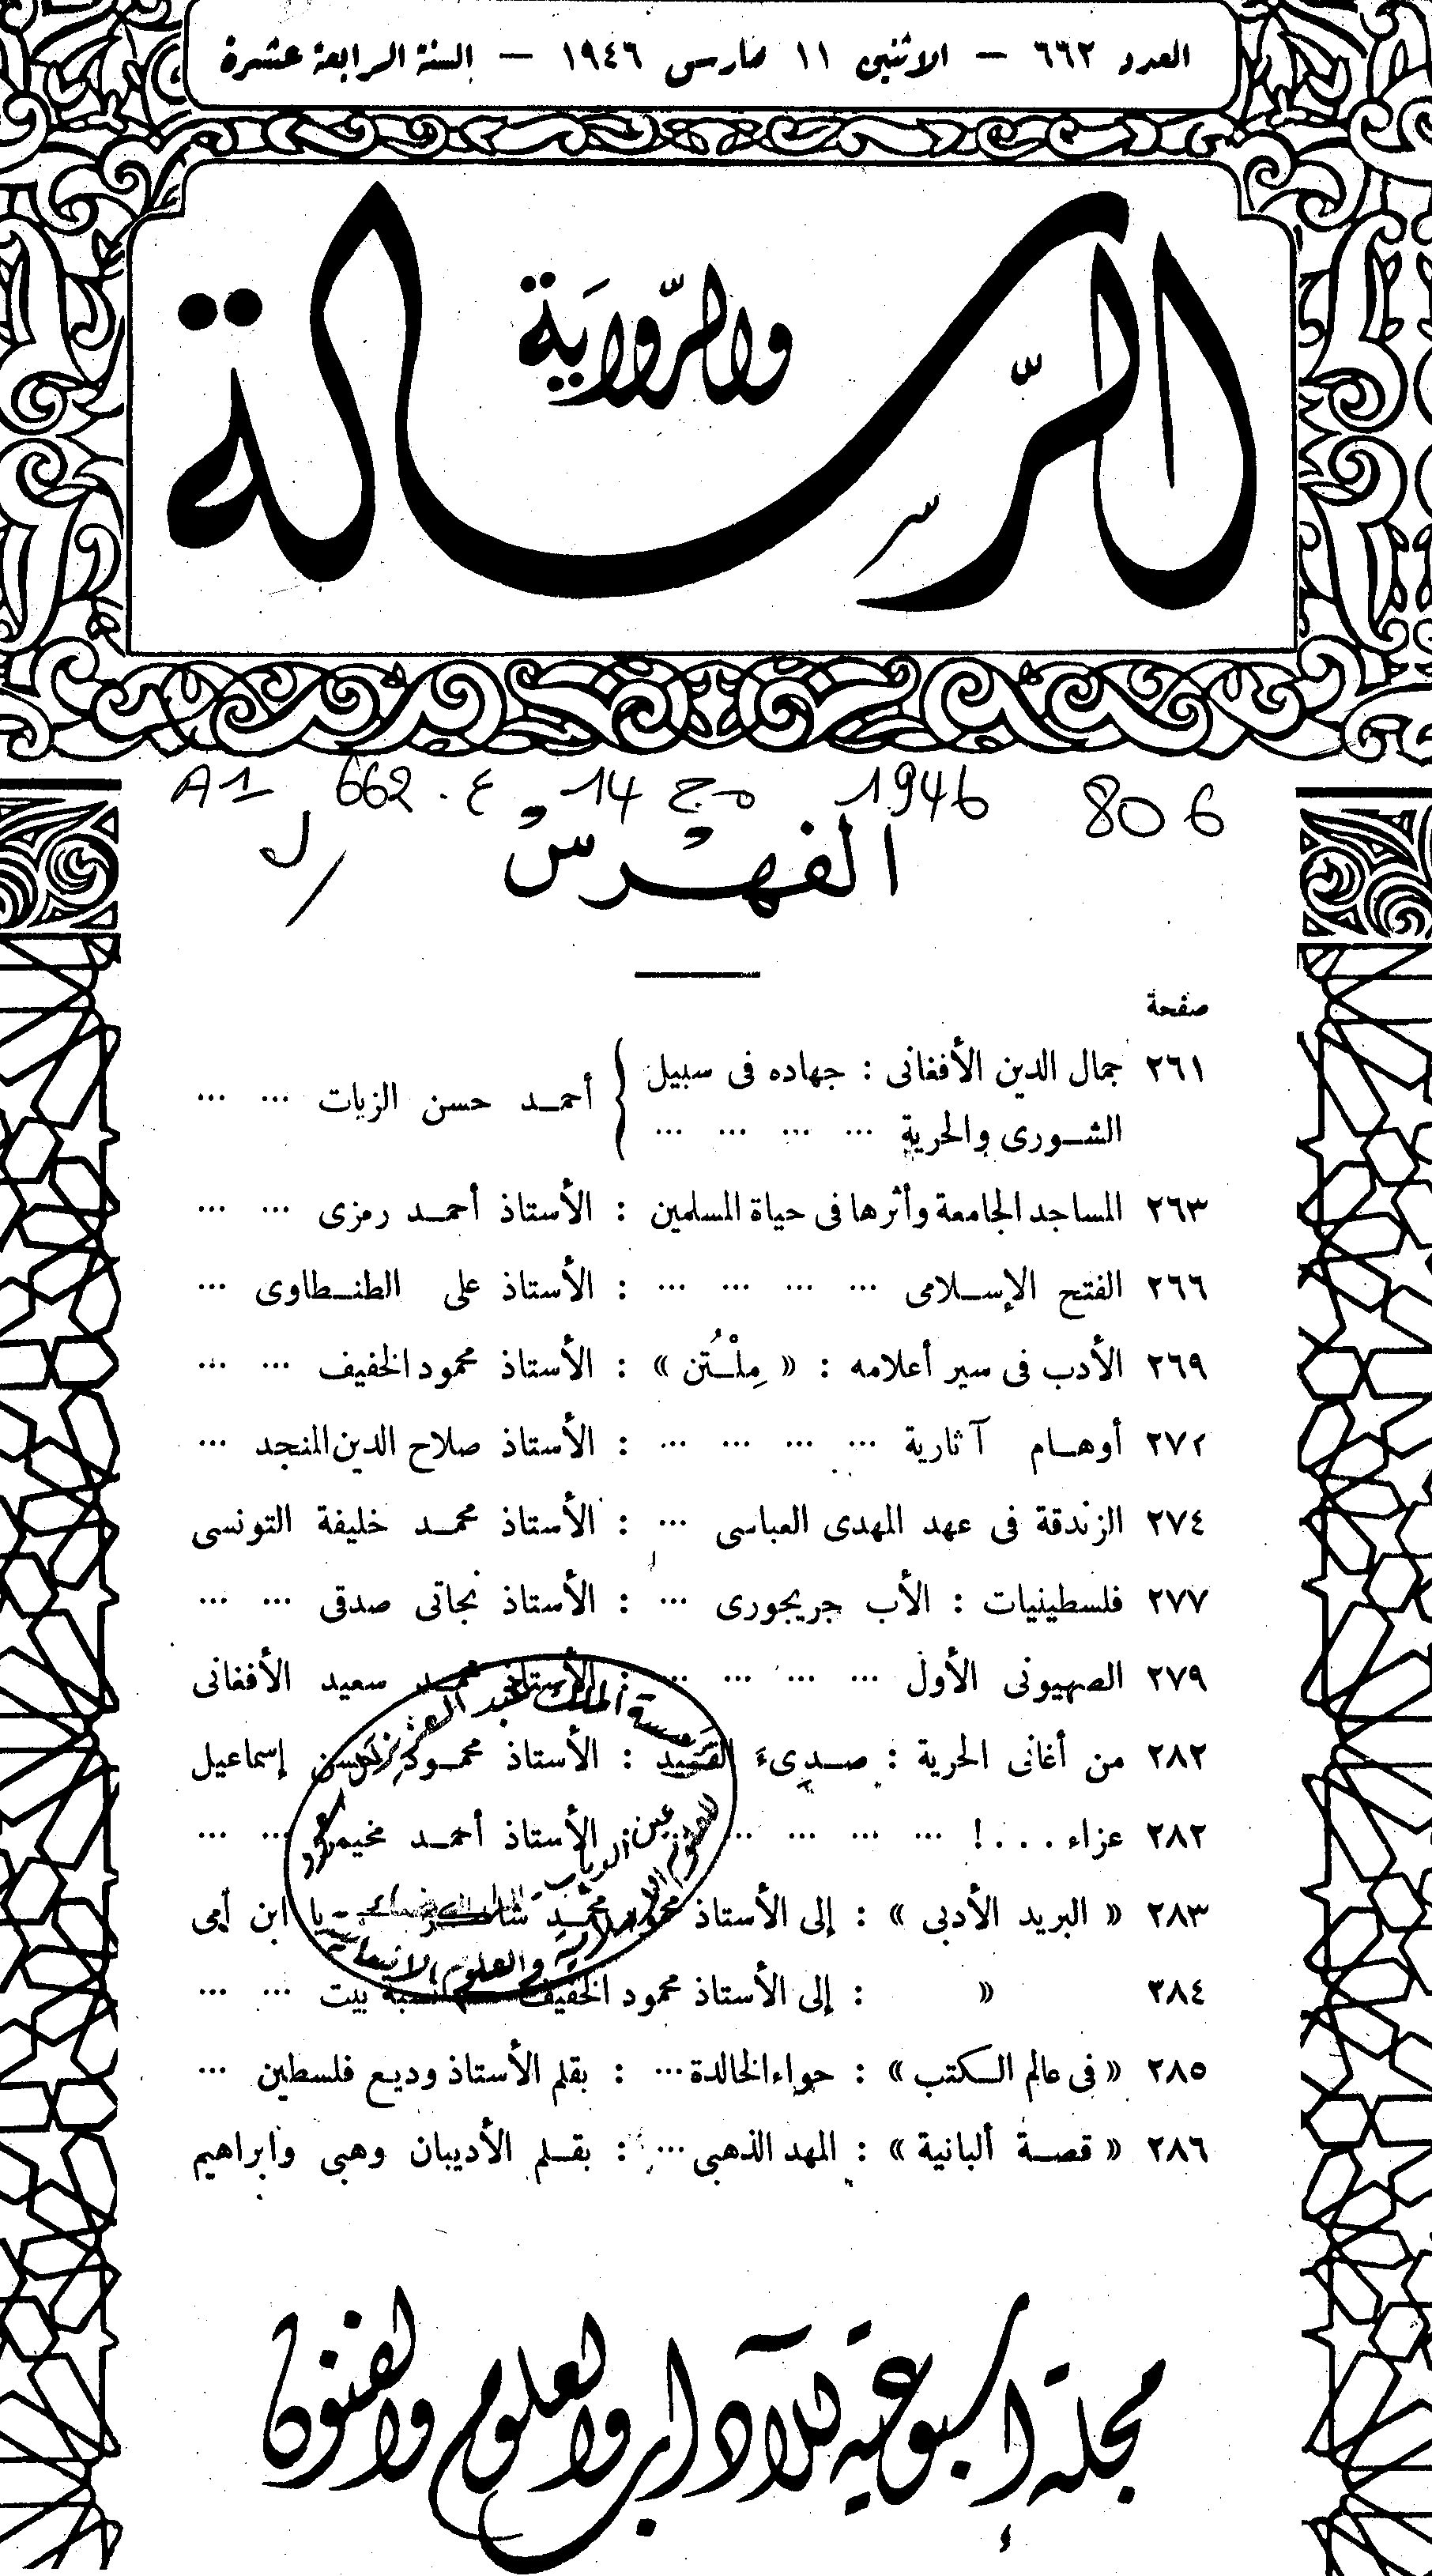 العدد ٦٦٢ — الاثنين ١١ مارس ١٩٤٦ — السنة الرابعة عشرة
الرسالة
والرّوايَة
806 1946 مج 14 ع. 662 A1
الفهْرسْ
صفحة
٢٦١ جمال الدين الأفغانى : جهاده فى سبيل الشورى والحرية ... ... ... ... } أحمد حسن الزيات ... ...
٢٦٣ المساجد الجامعة وأثرها فى حياة المسلمين : الأستاذ أحمد رمزى ... ...
٢٦٦ الفتح الإسلامى ... ... ... ... : الأستاذ على الطنطاوى ...
٢٦٩ الأدب فى سير أعلامه : « مِلْتُن » : الأستاذ محمود الخفيف ... ...
٢٧٢ أوهام آثارية ... ... ... ... : الأستاذ صلاح الدين المنجد ...
٢٧٤ الزندقة فى عهد المهدى العباسى ... : الأستاذ محمد خليفة التونسى
٢٧٧ فلسطينيات : الأب جريجورى ... : الأستاذ نجاتى صدقى ... ...
٢٧٩ الصهيونى الأول ... ... ... ... : الأستاذ محمد سعيد الأفغانى
٢٨٢ من أغانى الحرية : صدىء القيد : الأستاذ محمود حسن إسماعيل
٢٨٢ عزاء . . . ! ... ... ... ... : الأستاذ أحمد مخيمر ... ...
٢٨٣ « البريد الأدبى » : إلى الأستاذ محمود محمد شاكر يا ابن أمى
٣٨٤ » : إلى الأستاذ محمود الخفيف بيت ... ...
٢٨٥ « فى عالم الكتب » : حواء الخالدة ... : بقلم الأستاذ وديع فلسطين ...
٢٨٦ « قصة ألبانية » : المهد الذهبى ... : بقلم الأديبان وهبى وابراهيم
مجلة أسبوعية للآداب والعلوم والفنون